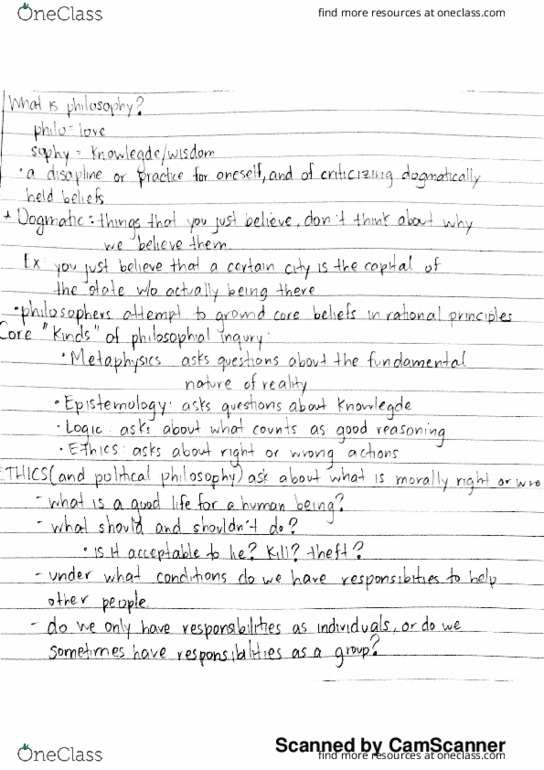 OneClass
find more resources at oneclass.com
What is philosophy?
philo = love
sophy = Knowlegde/wisdom
• a disapline or practice for oneself, and of criticizing dogmatically
held beliefs
* Dogmatic: things that you just believe, don't think about why
we believe them.
Ex: you just believe that a certain city is the capital of
the state w/o actually being there
• philosophers attempt to ground core beliefs in rational principles
Core "Kinds" of philosophial inqury:
• Metaphysics asks questions about the fundamental
nature of reality
• Epistemology: asks questions about Knowlegde
• Logic: asks about what counts as good reasoning
• Ethics: asks about right or wrong actions
ETHICS (and political philosophy) ask about what is morally right or wro
- what is a good life for a human being?
- what should and shouldn't do?
• Is it acceptable to lie? Kill? theft?
- under what conditions do we have responsibities to help
other people.
- do we only have responsibilities as individuals, or do we
sometimes have responsiblities as a group?
Scanned by CamScanner
OneClass
find more resources at oneclass.com